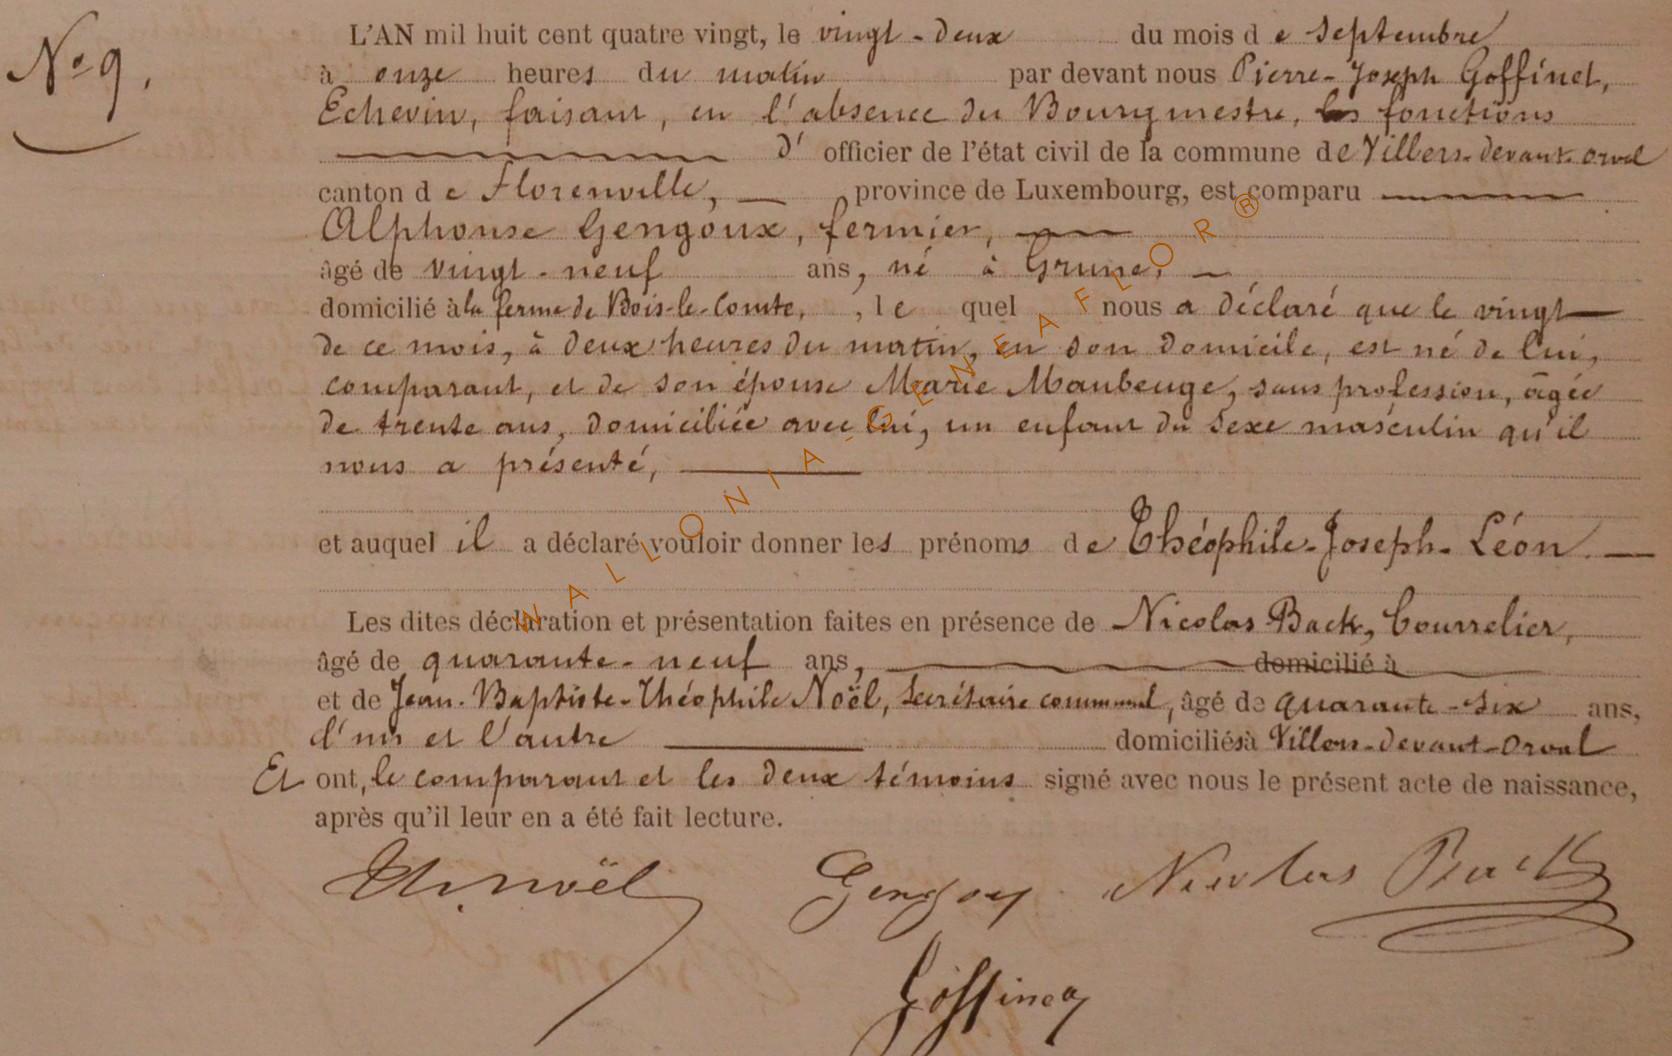 No 9.
L'AN mil huit cent quatre vingt, le vingt-deux du mois de Septembre
à onze heures du matin par devant nous Pierre-Joseph Goffinet,
Echevin, faisant, en l'absence du Bourgmestre, les fonctions
d' officier de l'état civil de la commune de Villers-devant-orval
canton de Florenville, province de Luxembourg, est comparu
Alphonse Gengoux, fermier,
âgé de vingt-neuf ans, né à Grune,
domicilié à la ferme de Bois-le-Comte, , lequel nous a déclaré que le vingt
de ce mois, à deux heures du matin, en son domicile, est né de lui,
comparant, et de son épouse Marie Maubeuge, sans profession, âgée
de trente ans, domiciliée avec lui, un enfant du sexe masculin qu'il
nous a présenté,
et auquel il a déclaré vouloir donner les prénoms de Théophile-Joseph-Léon.
Les dites déclaration et présentation faites en présence de Nicolas Back, Bourrelier,
âgé de quarante-neuf ans, domicilié à
et de Jean-Baptiste-Théophile Noël, Secrétaire communal, âgé de quarante-six ans,
l'un et l'autre domiciliés à Villers-devant-orval
Et ont, le comparant et les deux témoins signé avec nous le présent acte de naissance,
après qu'il leur en a été fait lecture.
Th. Noël Gengoux Nicolas Back
Goffinet
WALLONIA-GENEAFLOR®